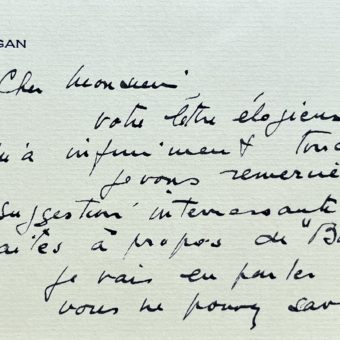 GAN
Cher Monsieur
votre lettre élogieus
m'a infiniment touc
je vous remercie
suggestion interessante
faites à propos de "Bo
je vais en parler
vous ne pouvez sav